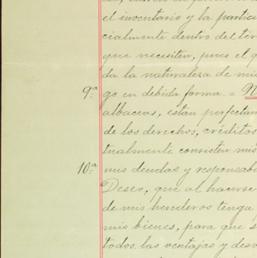 el inventario y la partic
cialmente dentro del ter
que necesiten, pues el q
da la naturaleza de mi
9ª
go en debida forma =
albaceas, están perfectam
de los derechos, créditos
tualmente consisten mis
10ª
mis deudas y responsabi
Deseo, que al hacerse
de mis herederos tenga
mis bienes, para que s
todos las ventajas y desv